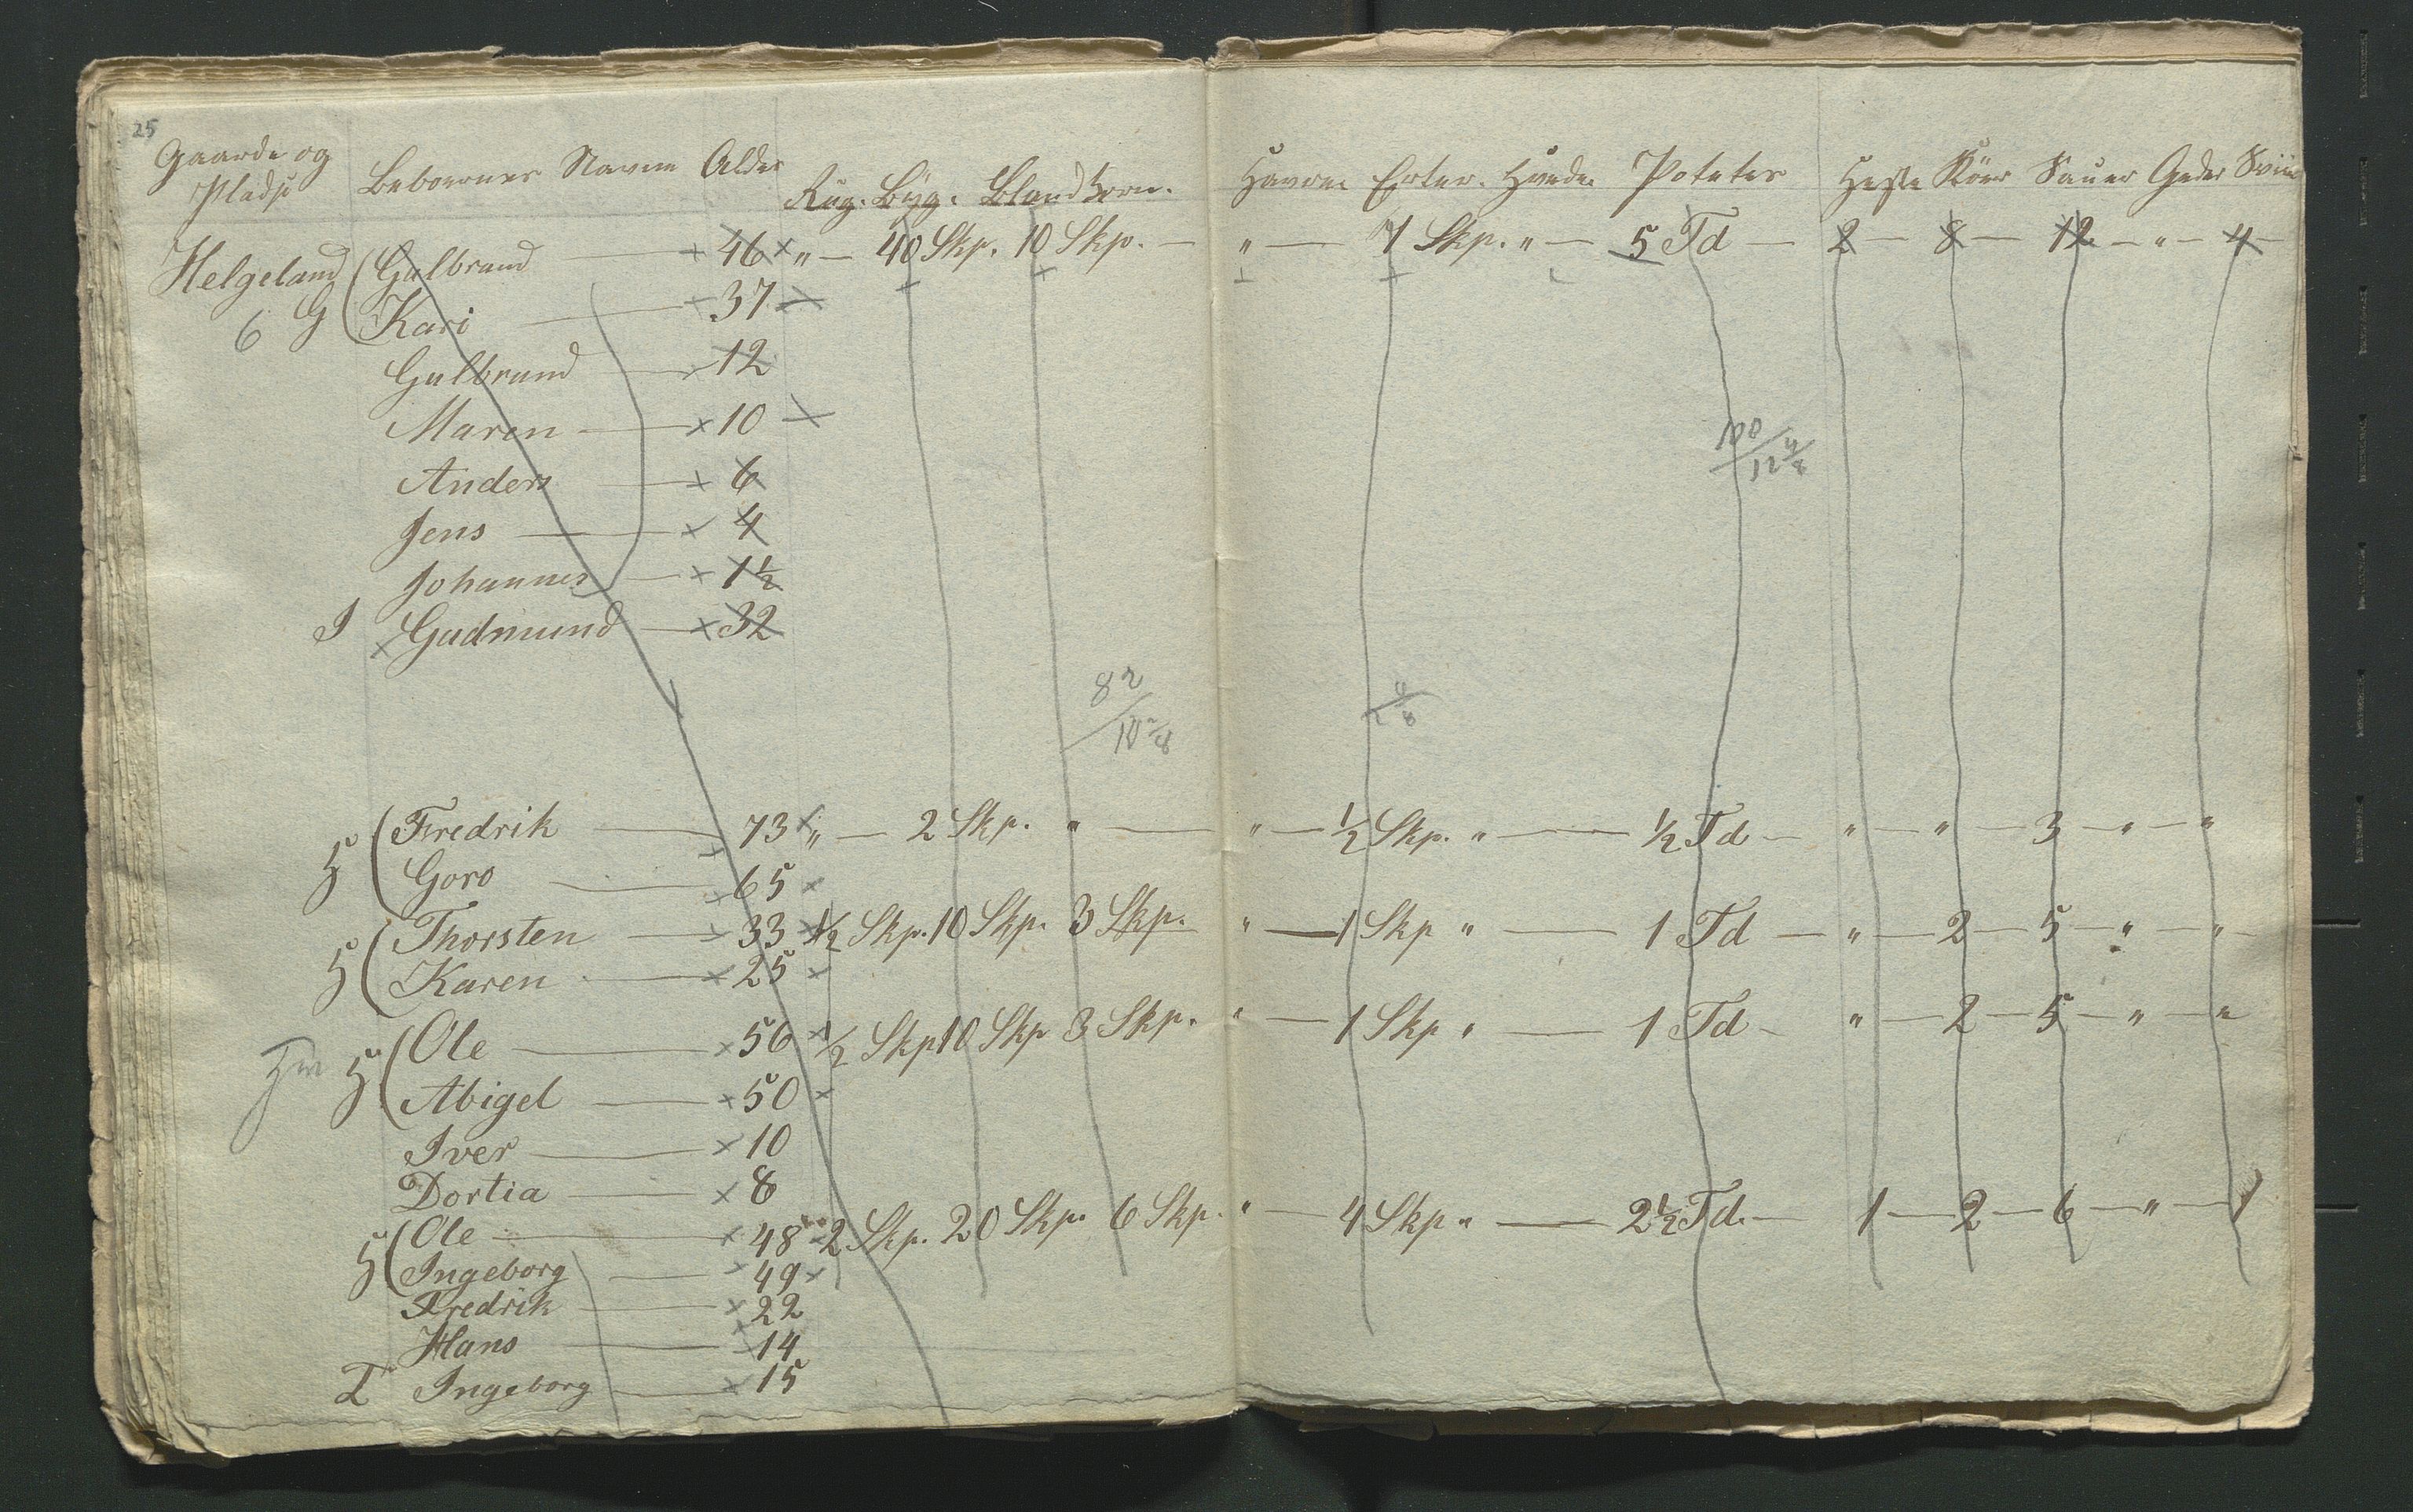 25
Gaarde og Pladse Beboernes Navne Alder Rug. Byg. Blandkorn. Havre Erter. Hvede Poteter Heste Köer Sauer Geder Sviin
Helgeland G Gulbrand — 46 " — 40 Skp. 10 Skp. — " — 7 Skp. " — 5 Td — 2 — 8 — 12 — " — 4
6 Kari — 37
Gulbrand — 12
Maren — 10
Anders — 6
Jens — 4
Johannes — 1½
I Gudmund — 32
100
12 4/8
82
10 2/8
H Fredrik — 73 " — 2 Skp. " — " — ½ Skp. " — ½ Td — " — " — 3 — " — "
Goro — 65
H Thorsten — 33 ½ Skp. 10 Skp. 3 Skp. " — 1 Skp " — 1 Td — " — 2 — 5 — " — "
Karen — 25
H Ole — 56 ½ Skp 10 Skp 3 Skp. " — 1 Skp " — 1 Td — " — 2 — 5 — " — "
Abigel — 50
Iver — 10
Dortia — 8
H Ole — 48 2 Skp. 20 Skp. 6 Skp. " — 4 Skp " — 2½ Td. — 1 — 2 — 6 — " — 1
Ingeborg — 49
Fredrik — 22
Hans — 14
I Ingeborg — 15